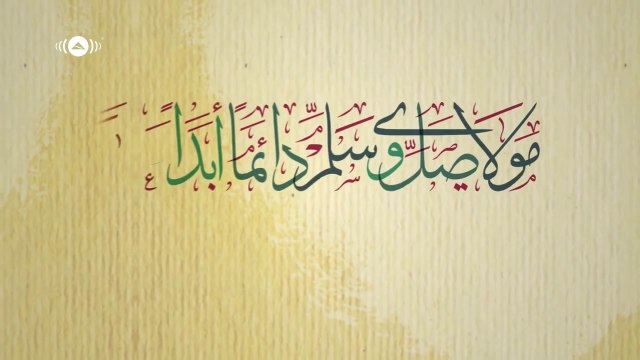 مَولَايَ صَلِّ وَسَلِّم دَائِمًا أَبَدًا